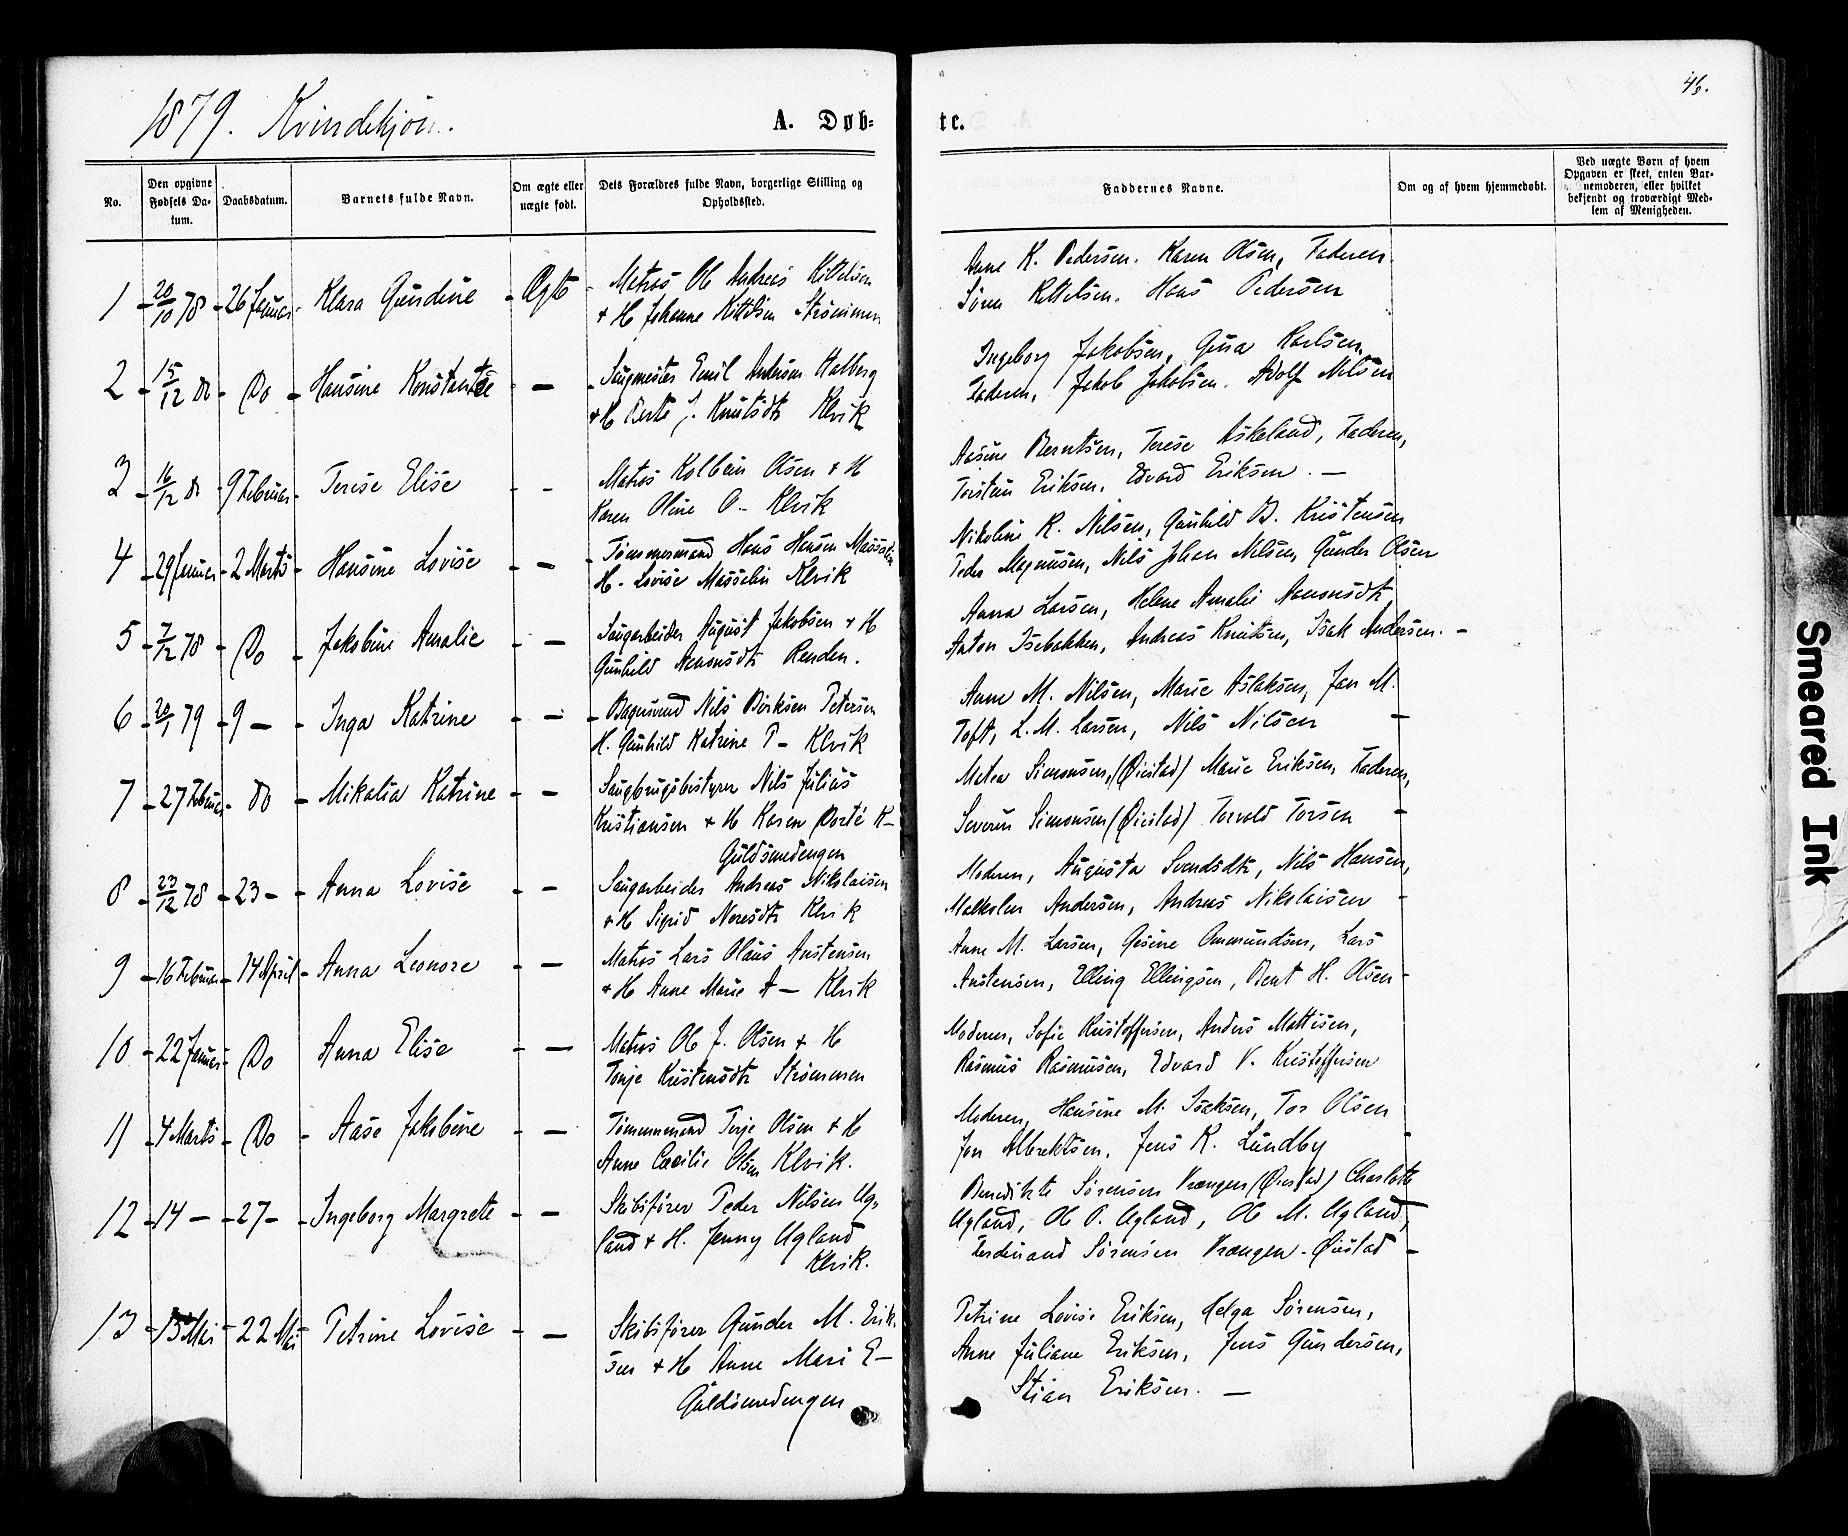 46.
1879. Kvindekjøn.
A. Døb-
te.
No.
Den opgivne Fødsels Da-
tum.
Daabsdatum.
Barnets fulde Navn.
Om ægte eller
uægte født.
Dets Forældres fulde Navn, borgerlige Stilling og
Opholdssted.
Faddernes Navne.
Om og af hvem hjemmedøbt.
Ved uægte Børn af hvem
Opgaven er skeet, enten Bar-
nemoderen, eller hvilket
bekjendt og troværdigt Med-
lem af Menigheden.
1 - 20/10 78 - 26 Januar - Klara Gundine - Ægte - Matros Ole Andreas Kittelsen
+ H Johanne Kittelsen Strømmen
Anne K. Pedersen. Karen Olsen, Faderen.
Søren Kittelsen. Hans Pedersen
2 - 15/12 Do - Do - Hansine Konstantse - - Saugmester Emil Andersen Halberg
+ H Berte J. Knutsdtr Klvik
Ingeborg Jakobsen, Gusa Karlsen,
Faderen, Jakob Jakobsen. Adolf Nilsen
3 - 16/12 Do - 9 Februar - Terese Elise - - Matros Kolbein Olsen + H
Karen Oline O- Klvik
Aasine Berntsen, Terese Askeland, Faderen,
Torstein Eriksen, Edvard Eriksen. -
4 - 29 Januar - 2 Marts - Hansine Lovise - - Tømmermand Hans Hansen
H. Lovise Masselin Klvik
Nikoline K. Nilsen, Gunhild B. Kristensen
Peder Magnusen, Nils Johan Nilsen, Gunder Olsen
5 - 7/12 78 - Do - Jakobine Amalie - - Saugarbeider August Jakobsen + H
Gunhild Aanonsdtr Renden.
Anna Larsen, Helene Amalie Aanonsdtr,
Anton Isebakken, Andreas Knutsen, Isak Andersen. -
6 - 20/1 79 - 9 - - Inga Katrine - - Bagersvend Nils Birksen Petersen
H. Gunhild Katrine P- Klvik
Anne M. Nilsen, Marie Aslaksen, Jan M.
Toft, L. M. Larsen, Nils Nilsen -
7 - 27 Februar - Do - Mikalia Katrine - - Saugbrugsbestyrer Nils Julius
Kristiansen + H Karen Dorté K-
Guldsmedengen
Metea Simonsen, (Øiestad) Marie Eriksen, Faderen,
Severin Simonsen (Øiestad) Torvald Torsen -
8 - 23/12 78 - 23 - - Anna Lovise - - Saugarbeider Andreas Nikolaisen
+ H Sigrid Neresdtr Klvik
Moderen, Augusta Svendsdtr, Nils Hansen,
Malkolm Andersen, Andreas Nikolaisen -
9 - 16 Februar - 14 April - Anna Leonore - - Matros Lars Olaus Austensen
+ H Anne Marie A- Klvik
Anne M. Larsen, Gesine Ommundsen, Lars
Austensen, Elling Ellingsen, Bent H. Olsen -
10 - 22 Januar - Do - Anna Elise - - Matros Ole J. Olsen + H
Tonje Kristensdtr Strømmen
Moderen, Sofie Kristoffersen, Anders Mattisen,
Rasmus Rasmusen, Edvard V. Kristoffersen
11 - 4 Marts - Do - Aase Jakobine - - Tømmermand Terje Olsen + H
Anne Cæcilie Olsen Klvik.
Moderen, Hansine M. Isaksen, Tor Olsen
Jon Albrektsen. Jens K. Lundby -
12 - 14 - - 27 - - Ingeborg Margrete - - Skibsfører Peder Nilsen Ug-
land + H. Jenny Ugland
Klvik.
Benedikte Sørensen Vrængen (Øiestad) Charlotte
Ugland, Ole P. Ugland, Ole M. Ugland,
Ferdinand Sørensen Vrængen - Øiestad -
13 - 13 Mai - 22 Mai - Petrine Lovise - - Skibsfører Gunder M. Erik-
sen + H Anne Mari E-
Guldsmedengen
Petrine Lovise Eriksen, Helga Sørensen,
Anne Juliane Eriksen, Jens Gundersen,
Stian Eriksen. -
Smeared Ink